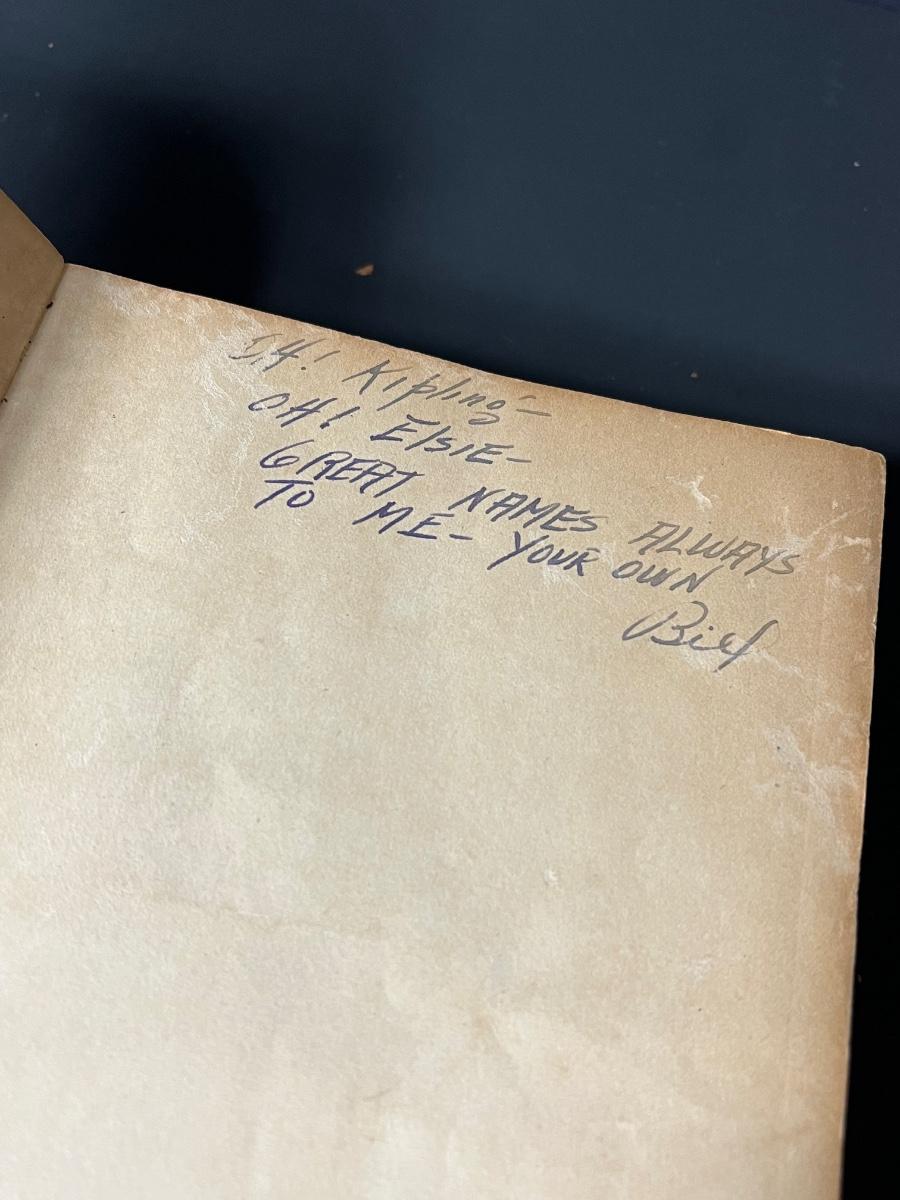 OH! Kipling—
OH! ELSIE—
GREAT NAMES ALWAYS
TO ME— YOUR OWN